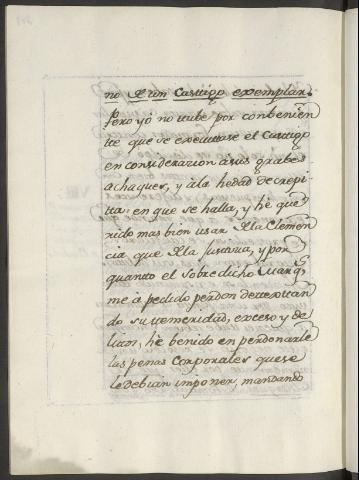 no de un Castigo exemplar.
Pero yo no tube por combenien
te que se executase el Castigo
en consideracion a sus grabes
achaques, y à la hedad decrepi
ta en que se halla, y hè que
rido mas bien usar de la Clemen
cia, que de la Justicia, y por
quanto el Sobredicho Marqs
me à pedido perdon detextan
do su temeridad, exceso y de
litos, hè benido en perdonarle
las penas Corporales que se
le debian imponer, mandando